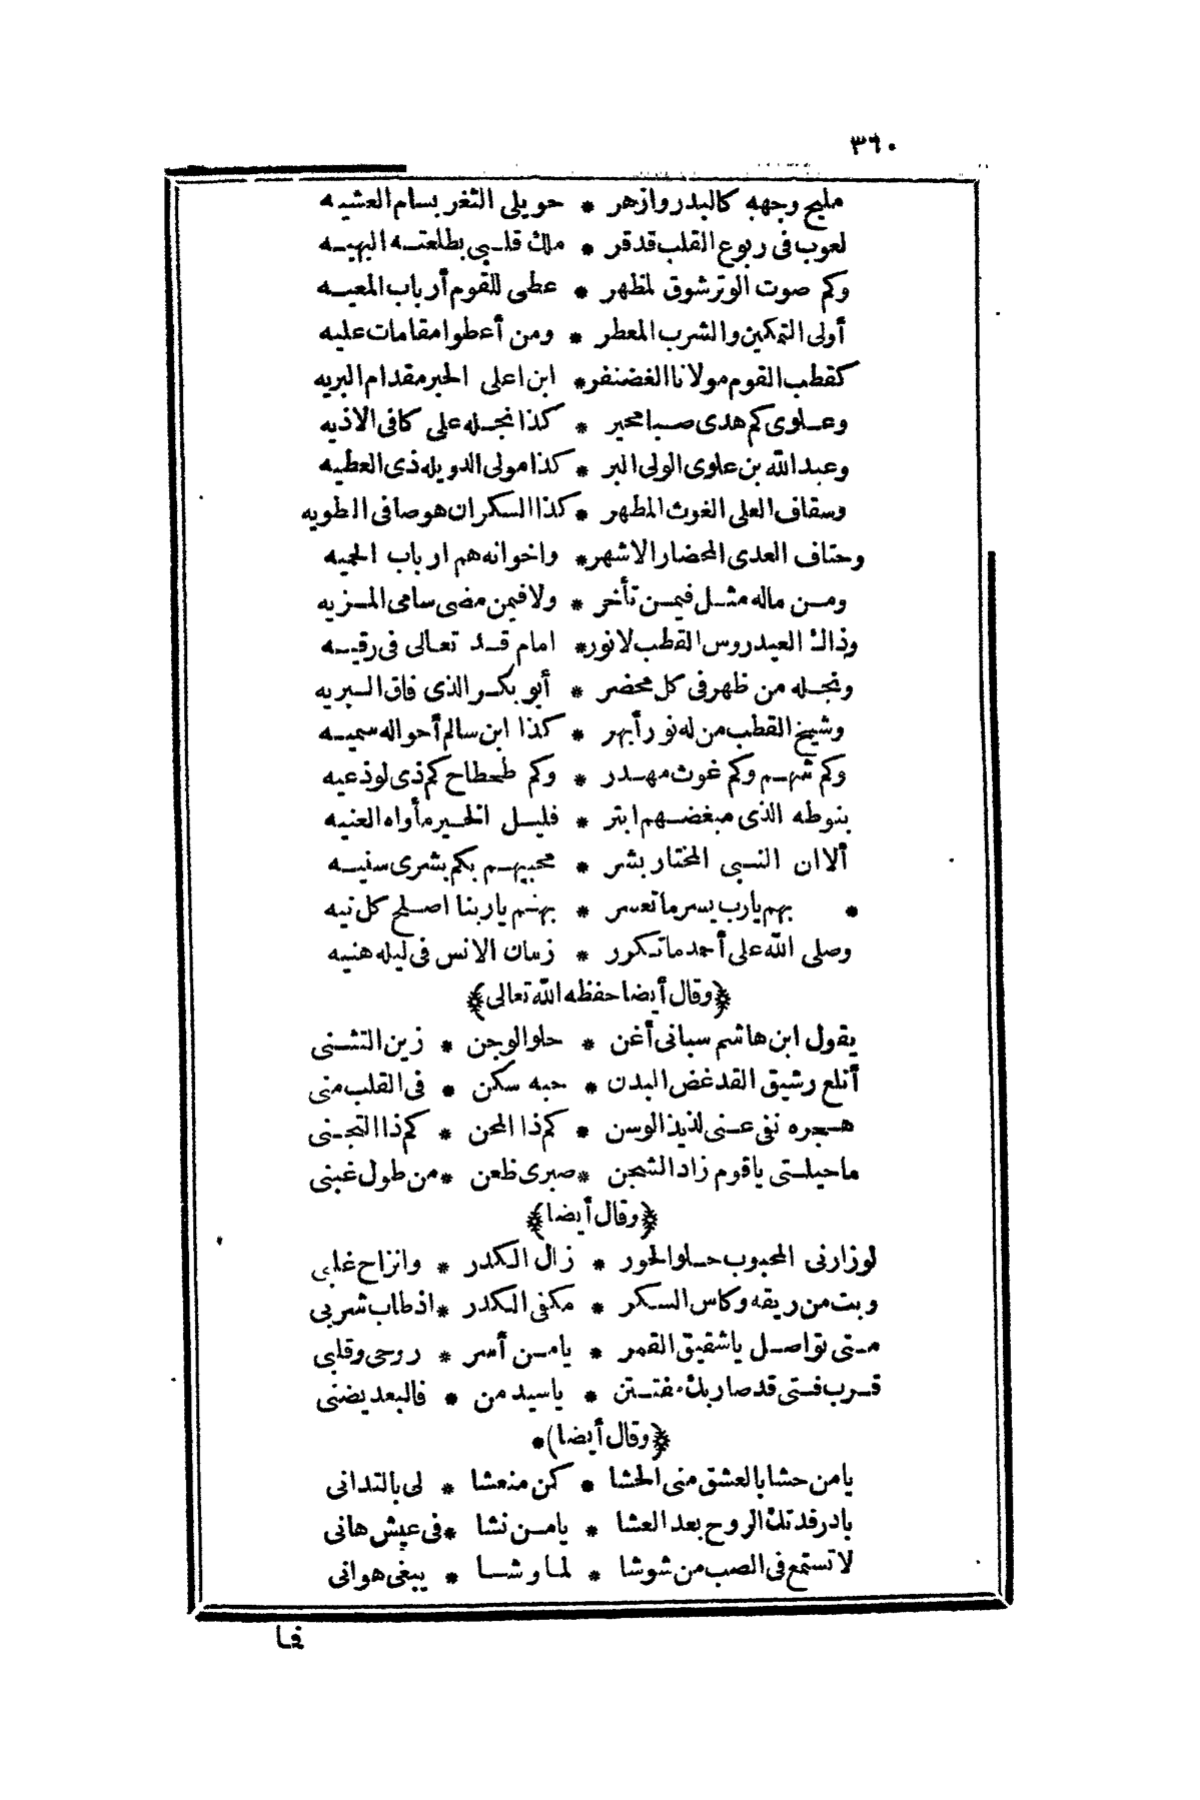 ٣٦٠
مليح وجهه كالبدر وازهر * حويلى الثغر بسام العشيه
لعوب فى ربوع القلب قد قر * ملك قلبى بطلعته البهيه
وكم صوت الوتر شوق لمظهر * عطى للقوم أرباب المعيه
أولى التمكين والشرب المعطر * ومن أعطوا مقامات عليه
كقطب القوم مولانا الغضنفر * ابن اعلى الحبر مقدام البريه
وعلوى كم هدى صبا محير * كذا نجله على كافى الاذيه
وعبد الله بن علوى الولى البر * كذا مولى الدويله ذى العطيه
وسقاف العلى الغوث المطهر * كذا السكران هو صافى الطويه
وحتاف العدى المحضار الاشهر * واخوانه هم ارباب الحميه
ومن ماله مثل فيمن تأخر * ولا فيمن مضى سامى المزيه
وذاك العيدروس القطب لانور * امام قد تعالى فى رقيه
ونجله من ظهر فى كل محضر * أبو بكر الذى فاق البريه
وشيخ القطب من له نور أبهر * كذا ابن سالم أحواله سميه
وكم شهم وكم غوث مهدر * وكم طحطاح كم ذى لوذعيه
بنوطه الذى مبغضهم ابتر * قليل الخير مأواه العنيه
ألا ان النبى المختار بشر * محبيهم بكم بشرى سنيه
* بهم يارب يسر ما تعسر * بهم ياربنا اصلح كل نيه
وصلى الله على أحمد ما تكرر * زمان الانس فى ليله هنيه
﴿وقال أيضا حفظه الله تعالى﴾
يقول ابن هاشم سبانى أغن * حلو الوجن * زين التثنى
أتلع رشيق القد غض البدن * حبه سكن * فى القلب منى
هجره نفى عنى لذيذ الوسن * كم ذا المحن * كم ذا التجنى
ما حيلتى ياقوم زاد الشجن * صبرى ظعن * من طول غبنى
﴿وقال أيضا﴾
لو زارنى المحبوب حلو الحور * زال الكدر * وانزاح غلبى
وبت من ريقه وكاس السكر * مكفى الكدر * اذ طاب شربى
متى تواصل ياشقيق القمر * يامن أسر * روحى وقلبى
قرب فتى قد صار بك مفتتن * ياسيد من * فالبعد يضنى
﴿وقال أيضا) *
يامن حشا بالعشق منى الحشا * كن منعشا * لى بالتدانى
بادر فدتك الروح بعد العشا * يامن نشا * فى عيش هانى
لا تستمع فى الصب من شوشا * لما وشا * يبغى هوانى
فما